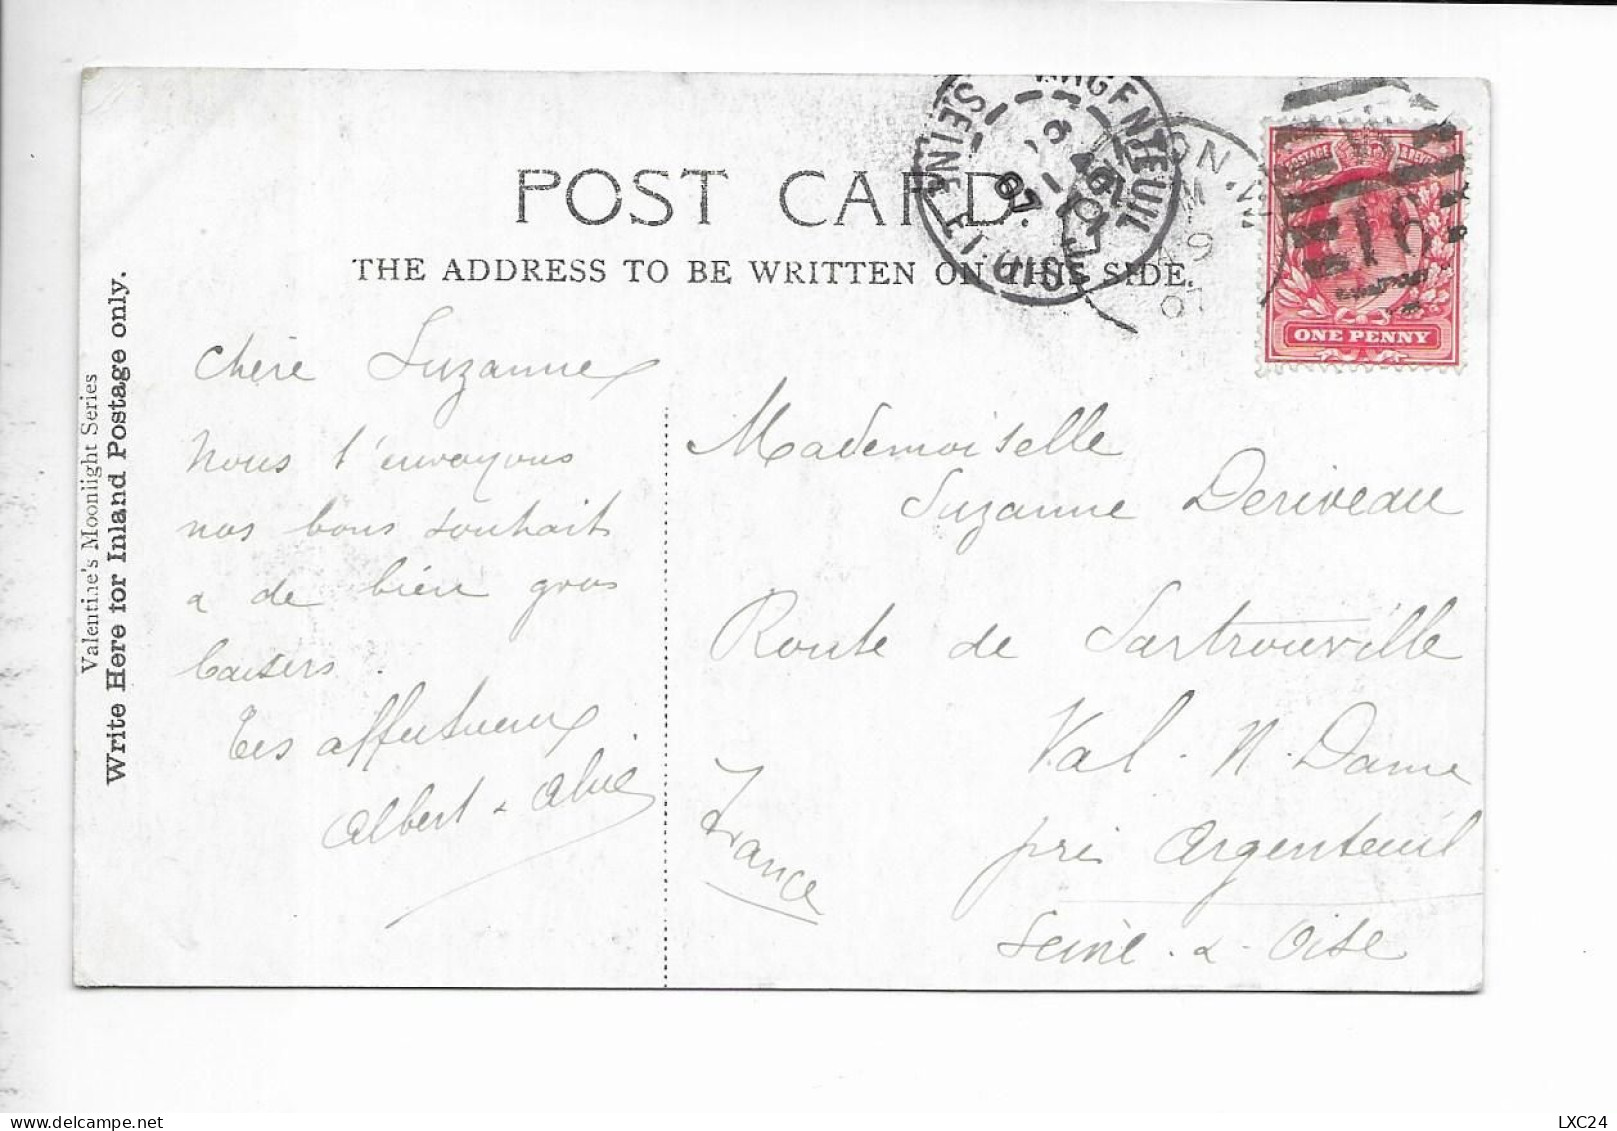 POST CARD
THE ADDRESS TO BE WRITTEN ON THIS SIDE.
Valentine's Moonlight Series
Write Here for Inland Postage only.
ARGENTEUIL
SEINE ET OISE
07
ON.
M
9
07
POSTAGE & REVENUE
16
ONE PENNY
Chère Suzanne
Nous t'envoyons
nos bons souhait
a de bien gros
baisers.
Tes affectueux
Albert &
Mademoiselle
Suzanne Deriveau
Route de Sartrouville
Val. N. Dame
près Argenteuil
Seine. &. Oise
France
LXC24